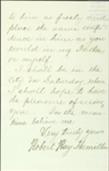 to him as freely and
place the same confi-
dence in him as you
would in my Father
or myself.
I shall be in the
city on Saturday, when
I shall hope to have
the pleasure of seeing
you. In the mean
time believe me
Very truly yours
Robert Ray Hamilton